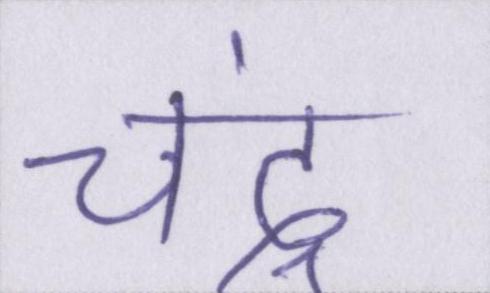 चंद्र